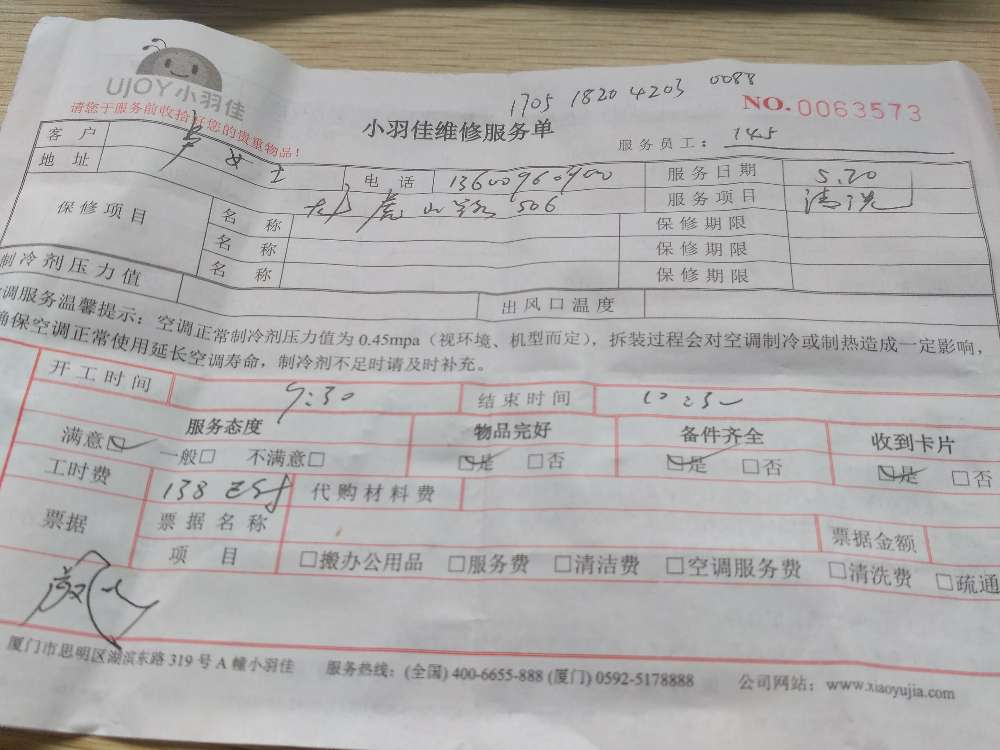 UJOY小羽佳
请您于服务前收拾好您的贵重物品!
1705 1820 4203 0088
NO.0063573
小羽佳维修服务单
服务员工: 145
客户 女士 电话 13600960900 服务日期 5.20
地址 506 服务项目 清洗
保修项目 名称 保修期限
名称 保修期限
名称 保修期限
制冷剂压力值 出风口温度
调服务温馨提示: 空调正常制冷剂压力值为 0.45mpa (视环境、机型而定), 拆装过程会对空调制冷或制热造成一定影响,
确保空调正常使用延长空调寿命, 制冷剂不足时请及时补充。
开工时间 9:30 结束时间 10:30
服务态度 物品完好 备件齐全 收到卡片
满意☑ 一般□ 不满意□ ☑是 □否 ☑是 □否 ☑是 □否
工时费 138 代购材料费
票据 票据名称 票据金额
项目 □搬办公用品 □服务费 □清洁费 □空调服务费 □清洗费 □疏通
厦门市思明区湖滨东路 319 号 A 幢小羽佳 服务热线: (全国) 400-6655-888 (厦门) 0592-5178888 公司网站: www.xiaoyujia.com